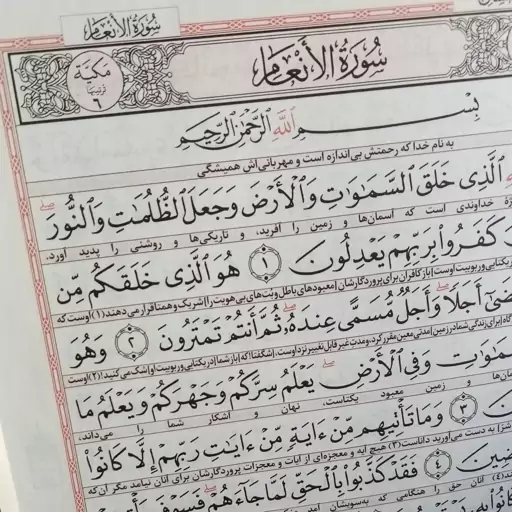 سُورَةُ الأَنْعَام
سُورَةُ الأَنْعَام
مَكِّيَّة
٦
بِسْمِ اللَّهِ الرَّحْمَٰنِ الرَّحِيمِ
به نام خدا که رحمتش بی‌اندازه است و مهربانی‌اش همیشگی
الَّذِي خَلَقَ السَّمَاوَاتِ وَالْأَرْضَ وَجَعَلَ الظُّلُمَاتِ وَالنُّورَ
خداوندی است که آسمان‌ها و زمین را آفرید، و تاریکی‌ها و روشنی را پدید آورد.
كَفَرُوا بِرَبِّهِمْ يَعْدِلُونَ ﴿١﴾ هُوَ الَّذِي خَلَقَكُم مِّن
یکتایی و ربوبیت اوست] باز کافران برای پروردگارشان [معبودهای باطل و بت‌های بی‌هویت را] شریک و همتا قرار می‌دهند (۱) اوست که
أَجَلًا وَأَجَلٌ مُّسَمًّى عِندَهُ ۖ ثُمَّ أَنتُمْ تَمْتَرُونَ ﴿٢﴾ وَهُوَ
برای زندگی شما در زمین] مدتی معین مقرر کرد، و مدت غیر قابل تغییر نزد اوست، [شگفتا که] باز شما [در یکتایی و ربوبیت او] شک می‌کنید! (۲) اوست
وَفِي الْأَرْضِ ۖ يَعْلَمُ سِرَّكُمْ وَجَهْرَكُمْ وَيَعْلَمُ مَا
و زمین معبود یکتاست، نهان و آشکار شما را می‌داند،
﴿٣﴾ وَمَا تَأْتِيهِم مِّنْ ءَايَةٍ مِّنْ ءَايَاتِ رَبِّهِمْ إِلَّا كَانُوا
به دست می‌آورید داناست (۳) هیچ آیه و معجزه‌ای از آیات و معجزات پروردگارشان برای آنان نیامد مگر آن که
﴿٤﴾ فَقَدْ كَذَّبُوا بِالْحَقِّ لَمَّا جَاءَهُمْ ۖ فَسَوْفَ
(۴) آنان حق را هنگامی که به‌سویشان آمد